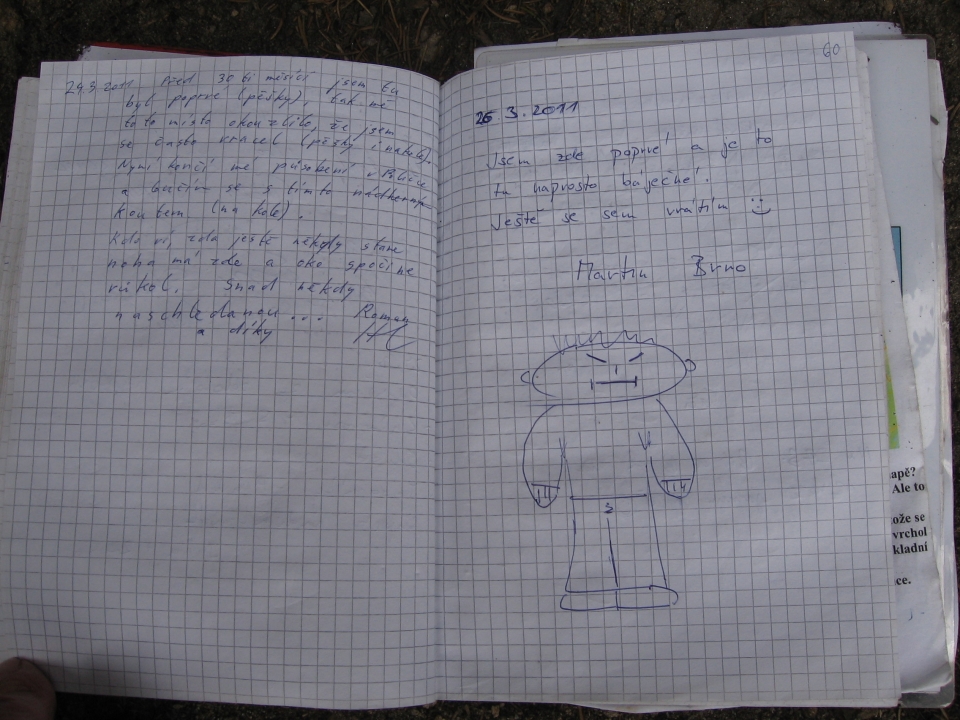 24.3.2011 Před 30 ti měsíci jsem tu
byl poprvé (pěšky), tak mě
toto místo okouzlilo, že jsem
se často vracel (pěšky i na kole).
Nyní končí mé působení v
a loučím se s tímto
koutem (na kole).
Kdo ví, zda ještě někdy stane
noha má zde a oko spočine
vůkol. Snad někdy
naschledanou... Roman
a díky
60
26 3.2011
Jsem zde poprvé a je to
tu naprosto báječné!
Ještě se sem vrátím :)
Martin Brno
3
apě?
Ale to
ože se
vrchol
kladní
ce.